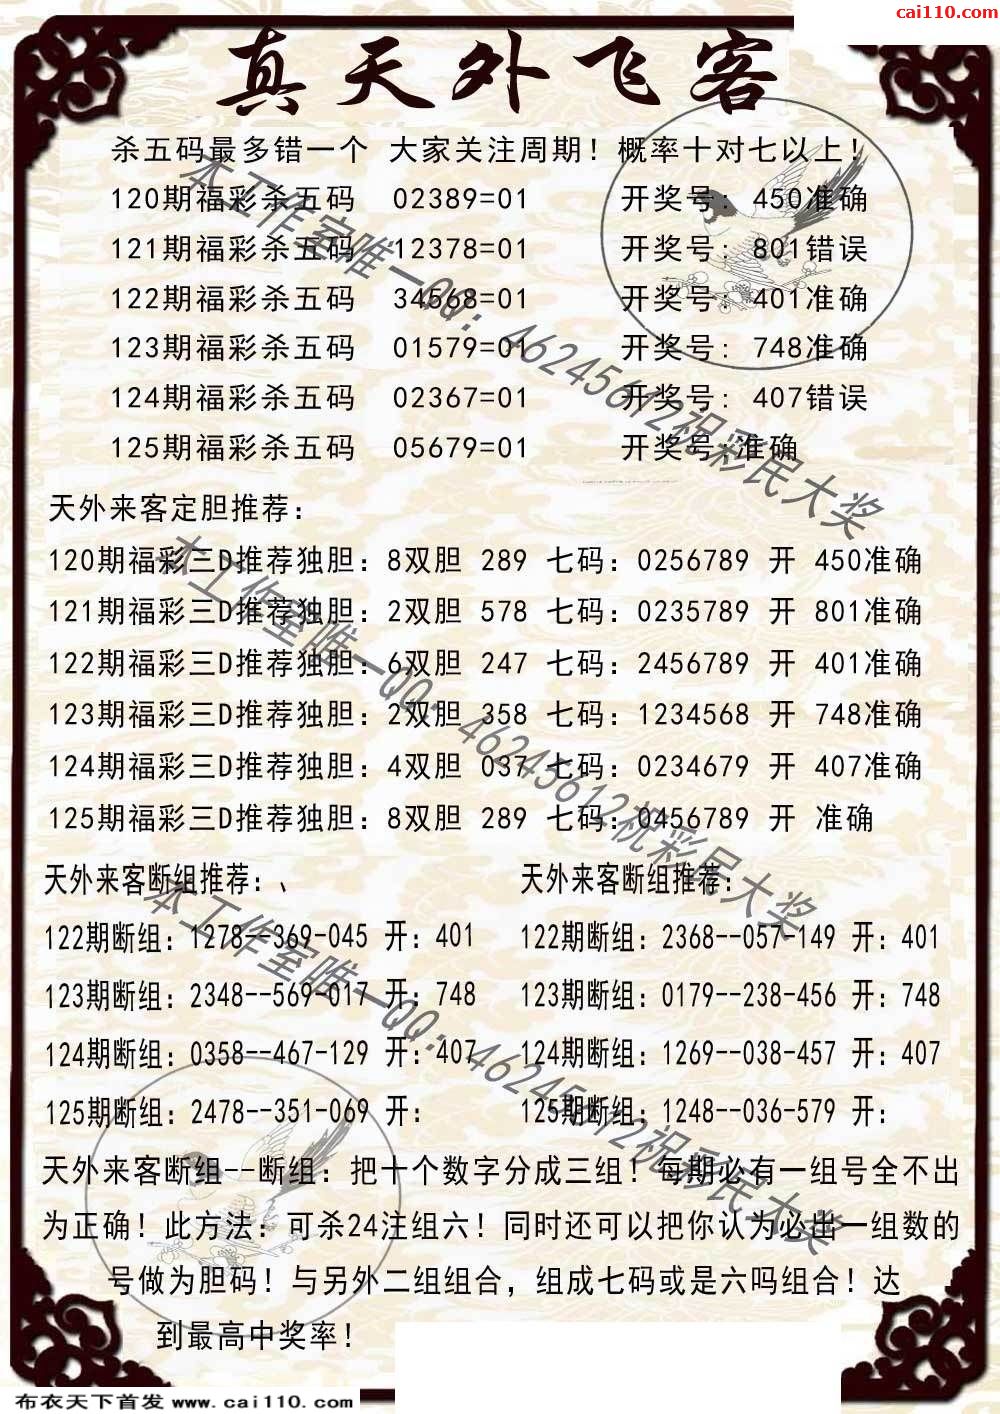 cai110.com
真天外飞客
杀五码最多错一个 大家关注周期！概率十对七以上！
120期福彩杀五码 02389=01 开奖号：450准确
121期福彩杀五码 12378=01 开奖号：801错误
122期福彩杀五码 34568=01 开奖号：401准确
123期福彩杀五码 01579=01 开奖号：748准确
124期福彩杀五码 02367=01 开奖号：407错误
125期福彩杀五码 05679=01 开奖号:准确
天外来客定胆推荐：
120期福彩三D推荐独胆：8双胆 289 七码：0256789 开 450准确
121期福彩三D推荐独胆：2双胆 578 七码：0235789 开 801准确
122期福彩三D推荐独胆：6双胆 247 七码：2456789 开 401准确
123期福彩三D推荐独胆：2双胆 358 七码：1234568 开 748准确
124期福彩三D推荐独胆：4双胆 037 七码：0234679 开 407准确
125期福彩三D推荐独胆：8双胆 289 七码：0456789 开 准确
天外来客断组推荐：、 天外来客断组推荐：
122期断组：1278--369-045 开：401 122期断组：2368--057-149 开：401
123期断组：2348--569-017 开：748 123期断组：0179--238-456 开：748
124期断组：0358--467-129 开：407 124期断组：1269--038-457 开：407
125期断组：2478--351-069 开： 125期断组：1248--036-579 开：
天外来客断组--断组：把十个数字分成三组！每期必有一组号全不出
为正确！此方法：可杀24注组六！同时还可以把你认为必出一组数的
号做为胆码！与另外二组组合，组成七码或是六吗组合！达
到最高中奖率！
本工作室唯一QQ：46245612祝彩民大奖
本工作室唯一QQ：46245612祝彩民大奖
本工作室唯一QQ：46245612祝彩民大奖
布衣天下首发 www.cai110.com